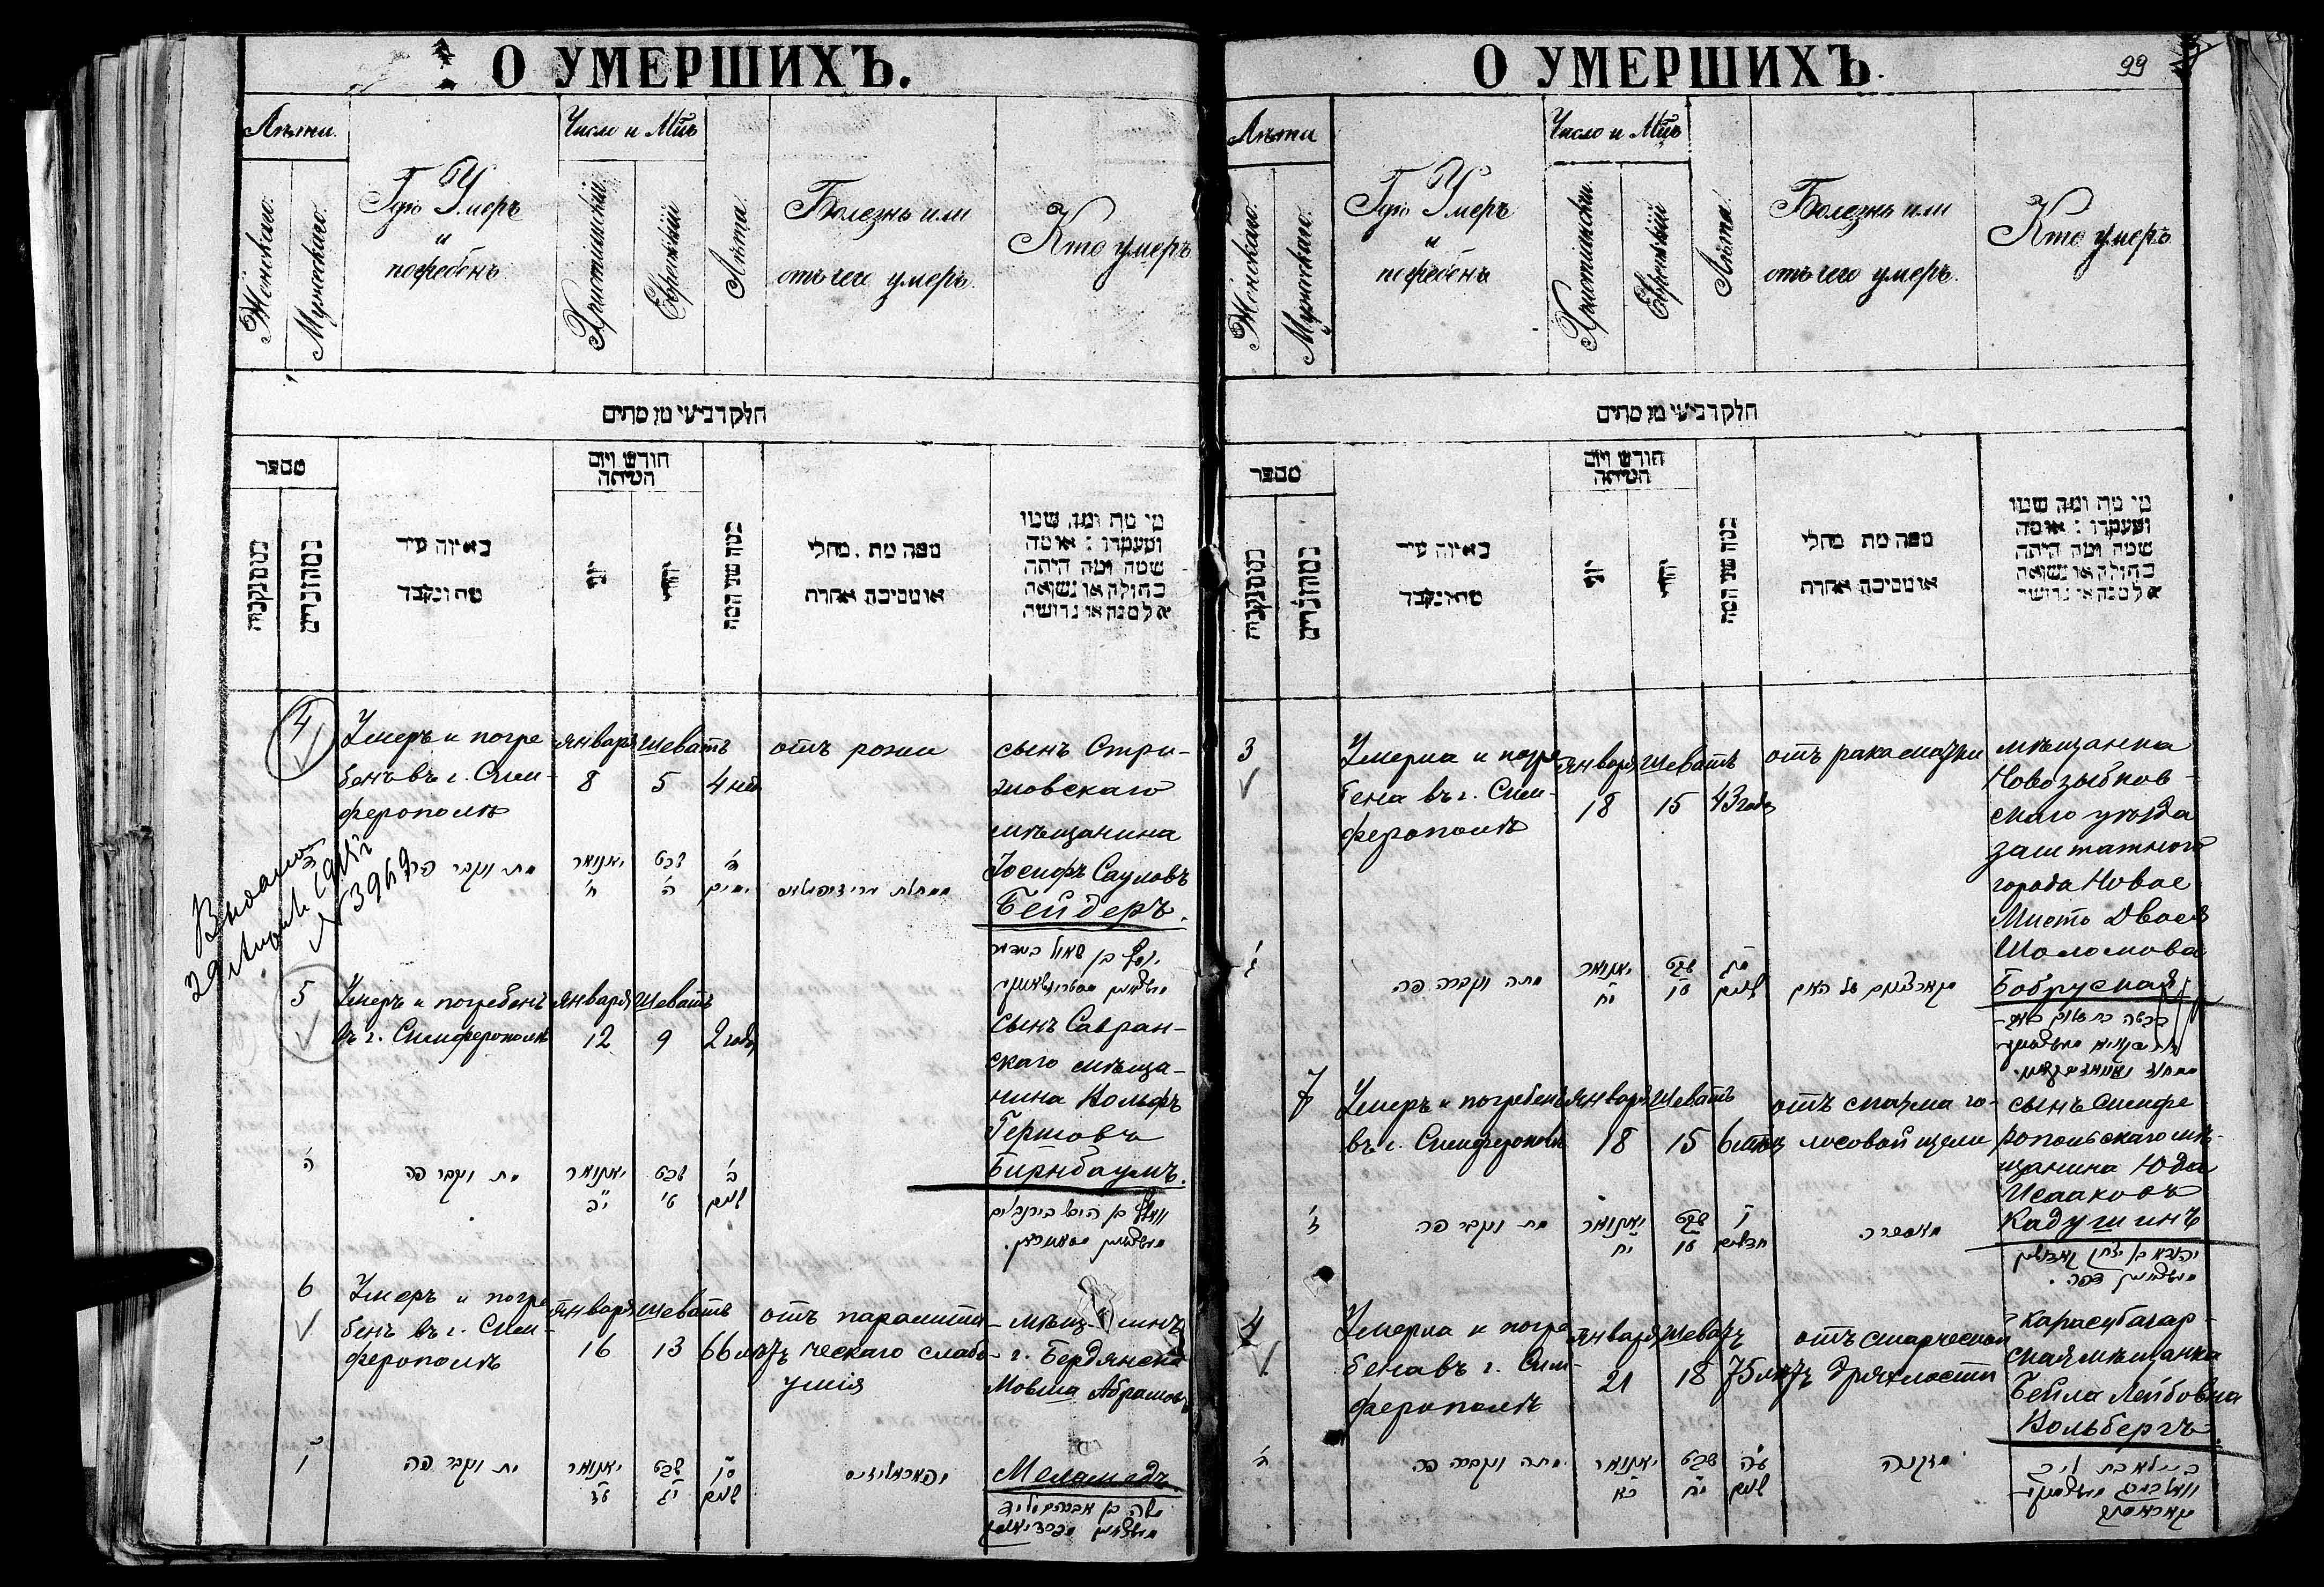 О УМЕРШИХЪ.
Лѣта.
Женскаго.
Мужескаго.
Гдѣ Умеръ
и
погребенъ
Число и Мцъ
Христіанскій.
Еврейскій
Лѣта.
Болезнь или
отъ чего умеръ.
Кто умеръ
חלק רביעי מן מתים
מספר
מהנקבות
מהזכרים
באיזה עיר
מת ונקבר
חודש ויום
המיתה
ממה מת . מחלי
או מסיבה אחרת
מי מת ומה שמו
ומעמדו : או מה
שמה ומה היתה
בתולה או נשואה
אלמנה או גרושה
4
Умеръ и погре
бенъ въ г. Сим-
ферополѣ
Января
8
Шеватъ
5
4 нед
отъ рожи
сынъ Стри-
жовскаго
мѣщанина
Іосифъ Сауловъ
Бейдеръ.
מת ונקבר פה
יאנואר
ח'
שבט
ה'
ד'
יוסף בן שאול ביידער
29
N 3969
5
Умеръ и погребенъ
въ г. Симферополѣ
Января
12
Шеватъ
9
2 года
сынъ Савран-
скаго мѣща-
нина Вольфъ
Гершовъ
Бирнбаумъ.
ה'
מת ונקבר פה
יאנואר
י"ב
שבט
ט'
ב'
שנים
6
Умеръ и погре
бенъ въ г. Сим-
ферополѣ
Января
16
Шеватъ
13
66 лѣтъ
отъ паралити-
ческаго слабо-
умія
мѣщанинъ
г. Бердянска
Мовша Абрамовъ
Меламедъ
ו'
מת ונקבר פה
יאנואר
ט"ז
שבט
י"ג
ס"ו
שנים
О УМЕРШИХЪ.
99
Лѣта
Женскаго.
Мужескаго.
Гдѣ Умеръ
и
погребенъ
Число и Мцъ
Христіанскій.
Еврейскій
Лѣта.
Болезнь или
отъ чего умеръ.
Кто умеръ
חלק רביעי מן מתים
מספר
מהנקבות
מהזכרים
באיזה עיר
מת ונקבר
חודש ויום
המיתה
ממה מת מחלי
או מסיבה אחרת
מי מת ומה שמו
ומעמדו : או מה
שמה ומה היתה
בתולה או נשואה
אלמנה או גרושה
3
Умерла и погре
бена въ г. Сим-
ферополѣ
Января
18
Шеватъ
15
43 года
отъ рака матки
мѣщанка
Новозыбков-
скаго уѣзда
заштатного
города Новое
Мисто Двося
Шоломова
Бобруская
ג'
מתה ונקברה פה
יאנואר
י"ח
שבט
ט"ו
מ"ג
שנים
7
Умеръ и погребенъ
въ г. Симферополѣ
Января
18
Шеватъ
15
отъ спазма го-
лосовой щели
сынъ Симфе
ропольскаго мѣ-
щанина Юда
Исааковъ
Кадушинъ
ז'
מת ונקבר פה
יאנואר
י"ח
שבט
ט"ו
ו'
חדשים
יהודא בן יצחק קאדושין
4
Умерла и погре
бена въ г. Сим-
ферополѣ
Января
21
Шеватъ
18
75 лѣтъ
отъ старческой
дряхлости
Карасубазар-
ская мѣщанка
Бейла Лейбовна
Вольбергъ.
ד'
מתה ונקברה פה
יאנואר
כ"א
שבט
י"ח
ע"ה
שנים
מזקנה
ביילא בת ליב